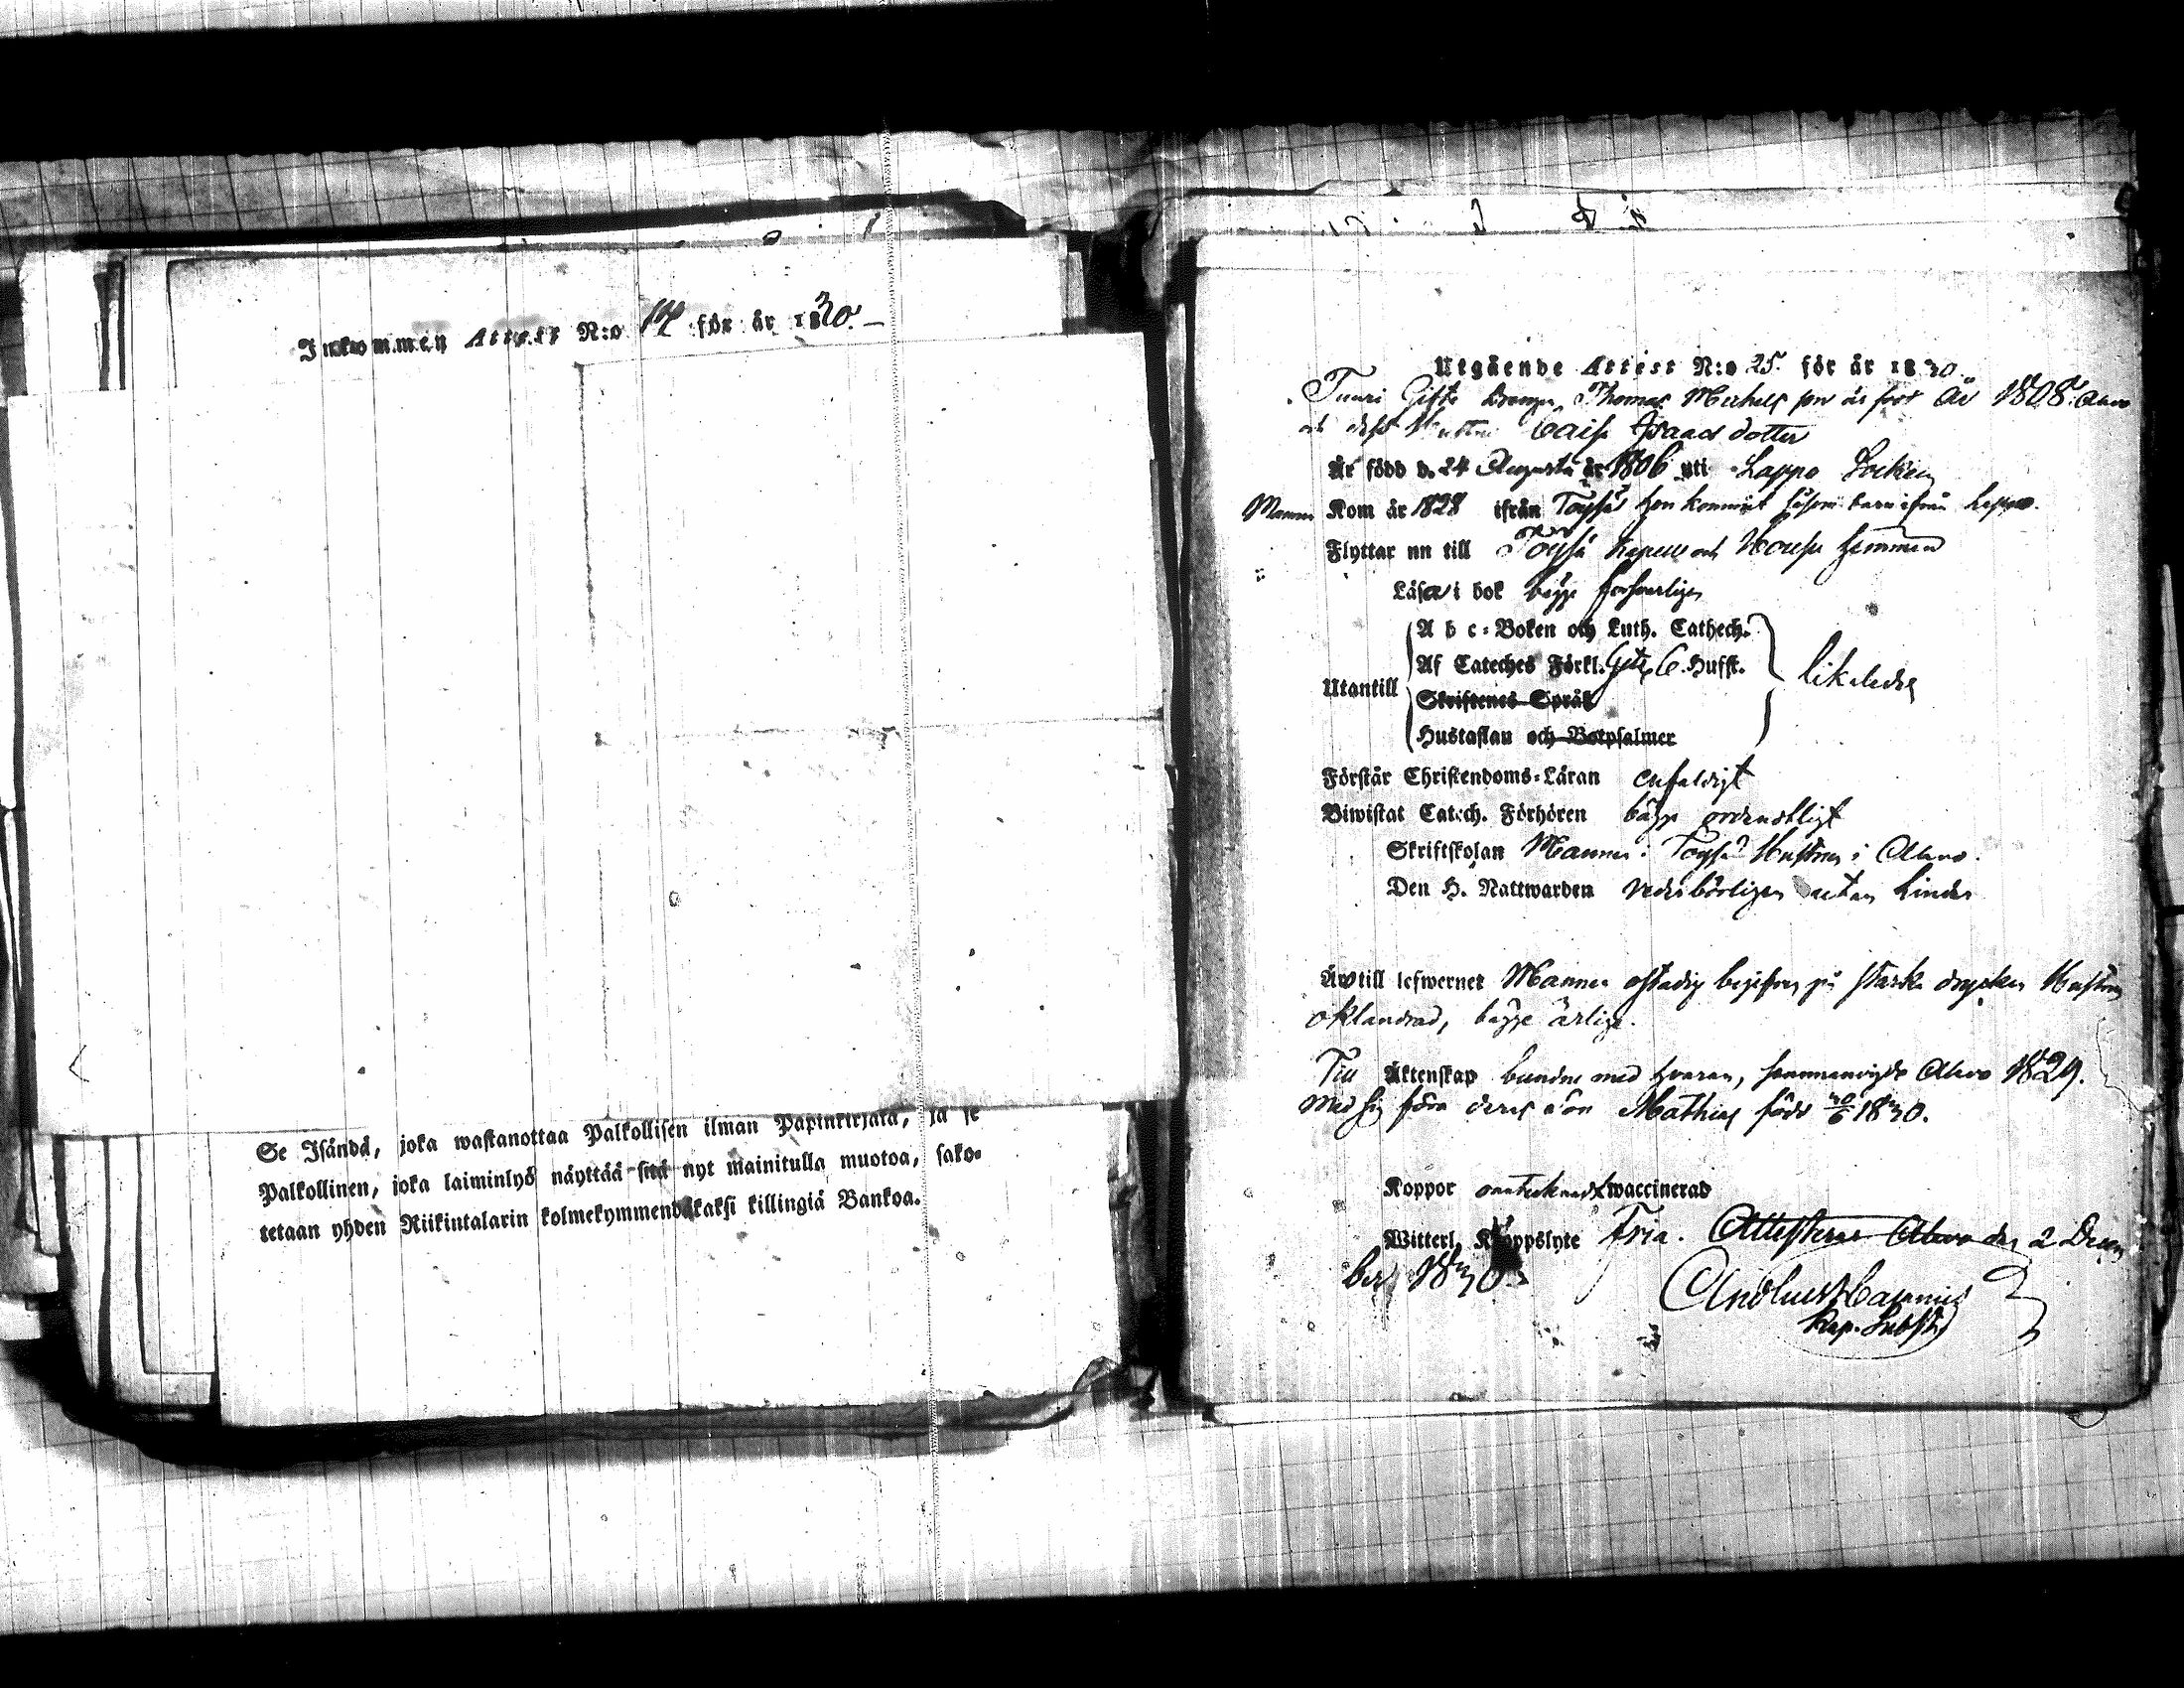 Inkommen Attest N:o 14 för år 1830.
Se Isändä, joka wastanottaa Palkollisen ilman Papinkirjata, ja se
Palkollinen, joka laiminlyö näyttää sitä nyt mainitulla muotoa, sako-
tetaan yhden Riikintalarin kolmekymmendäkaksi killingiä Bankoa.
Utgående Attest N:o 25. för år 1830.
Tuuri Gifte Drengen Thomas Michels son är född År 1808. Alavo
och dess Hustru Caisa Isaacs dotter
Är född d. 24 Augusti år 1806 uti Lappo Socken
Mannen Kom år 1828 ifrån Töysä hon kommit såsom barn ifrån Lappo.
Flyttar nu till Töysä Kapell och hemman
Läsa i bok bägge försvarligen
A b c-Boken och Luth. Cathech.
Af Cateches Förkl. 6 Hufst.
Utantill
likaledes
Skriftenes Språk
Hustaflan och Botpsalmer
Förstår Christendoms-Läran enfaldigt
Biwistat Catech. Förhören bägge ordentligt
Skriftskolan Mannen i Töysä Hustrun i Alavo.
Den H. Nattwarden vederbörligen utan hinder
Är till lefwernet Mannen ostadig begifven på starka drycker Hustrun
oklandrad, bägge ärliga.
Till Äktenskap bundne med hvaran, sammanvigde Alavo 1829.
Med sig föra deras son Mathias född 1830.
Koppor waccinerad
Witterl. Kroppslyte Fria. Attesteras Alavo den 2 Decem
ber 1830.
Kap. Subst.